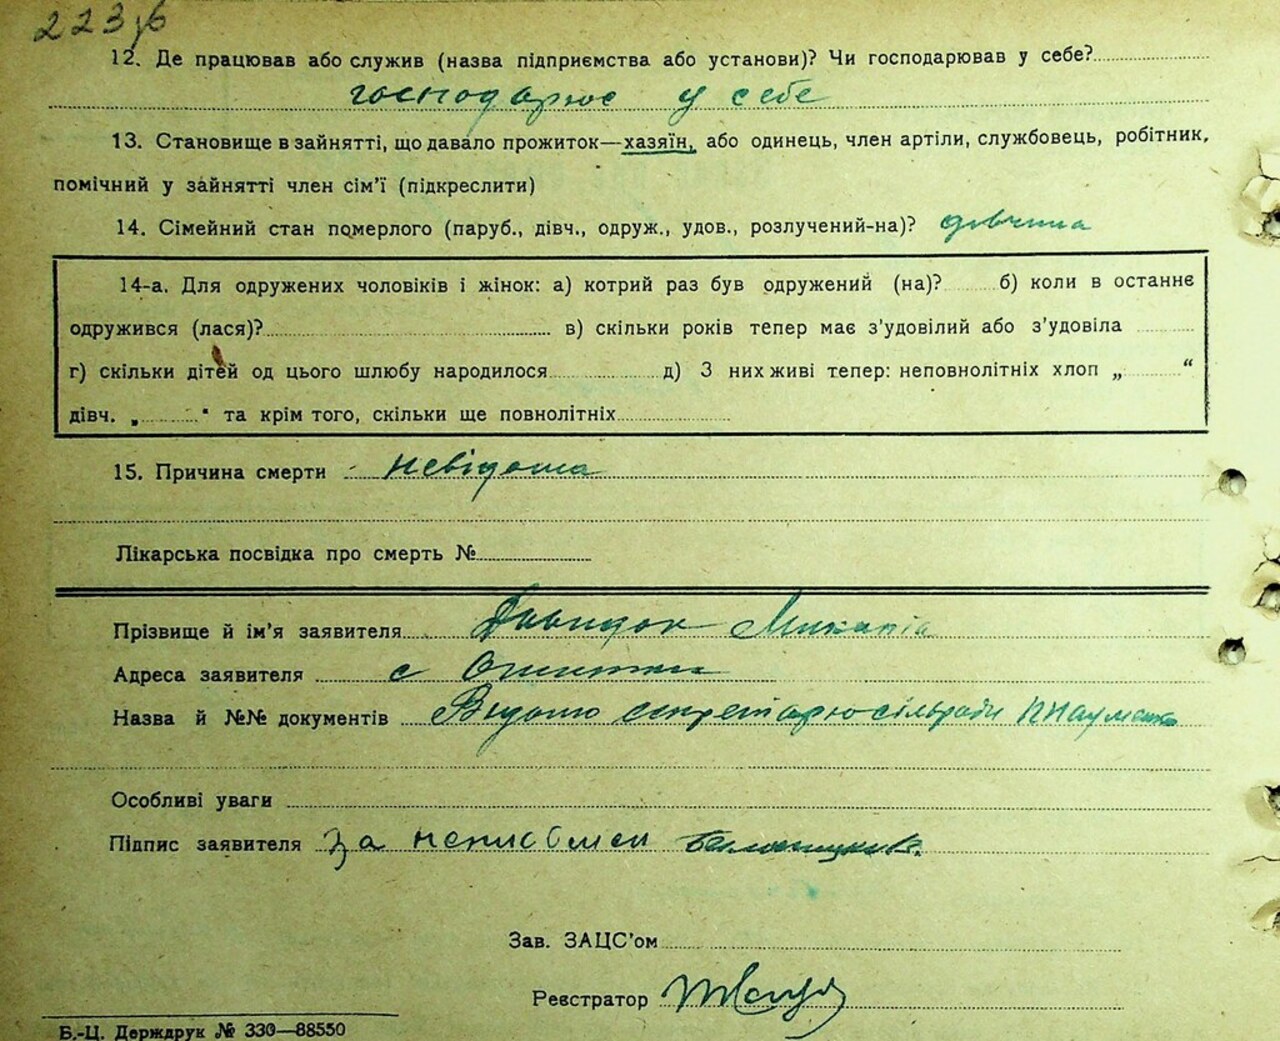 223
12. Де працював або служив (назва підприємства або установи)? Чи господарював у себе?
господарює у себе
13. Становище в зайнятті, що давало прожиток—хазяїн, або одинець, член артіли, службовець, робітник,
помічний у зайнятті член сім'ї (підкреслити)
14. Сімейний стан померлого (паруб., дівч., одруж., удов., розлучений-на)? дівчина
14-а. Для одружених чоловіків і жінок: а) котрий раз був одружений (на)? б) коли в останнє
одружився (лася)? в) скільки років тепер має з'удовілий або з'удовіла
г) скільки дітей од цього шлюбу народилося д) З них живі тепер: неповнолітніх хлоп „ “
дівч. „ “ та крім того, скільки ще повнолітніх
15. Причина смерти невідома
Лікарська посвідка про смерть №
Прізвище й ім'я заявителя Давидок
Адреса заявителя с
Назва й №№ документів Відомо секретарю сільради Науменко
Особливі уваги
Підпис заявителя За неписьмен
Зав. ЗАЦС'ом
Реєстратор
Б.-Ц. Держдрук № 330—88550